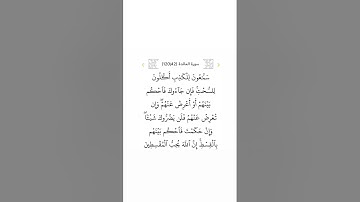 سورة المائدة (42|120)
سَمَّٰعُونَ لِلۡكَذِبِ أَكَّٰلُونَ
لِلسُّحۡتِۚ فَإِن جَآءُوكَ فَٱحۡكُم
بَيۡنَهُمۡ أَوۡ أَعۡرِضۡ عَنۡهُمۡۖ وَإِن
تُعۡرِضۡ عَنۡهُمۡ فَلَن يَضُرُّوكَ شَيۡـٔٗاۖ
وَإِنۡ حَكَمۡتَ فَٱحۡكُم بَيۡنَهُم
بِٱلۡقِسۡطِۚ إِنَّ ٱللَّهَ يُحِبُّ ٱلۡمُقۡسِطِينَ